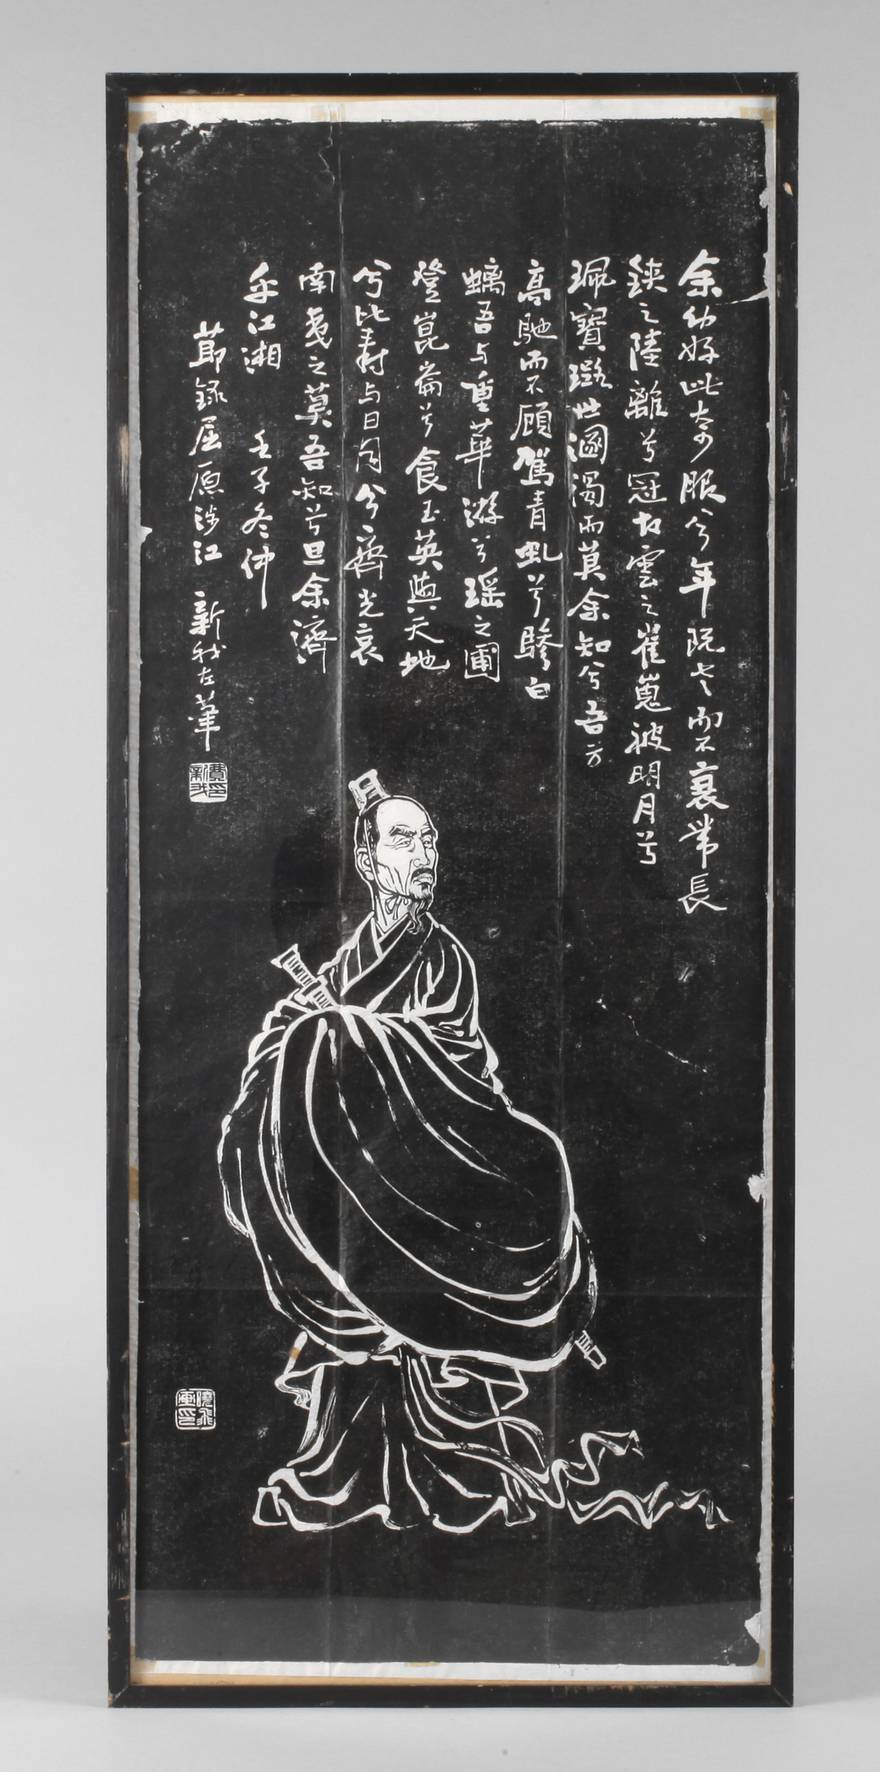 余幼好此奇服兮年既老而不衰带長
鋏之陸離兮冠切雲之崔嵬被明月兮
珮寶璐世溷濁而莫余知兮吾方
高馳而不顧駕青虬兮驂白
螭吾与重華游兮瑶之圃
登崑崙兮食玉英與天地
兮比寿与日月兮齊光哀
南夷之莫吾知兮旦余濟
乎江湘 壬子冬仲
節録屈原涉江 新我左筆
費新我印